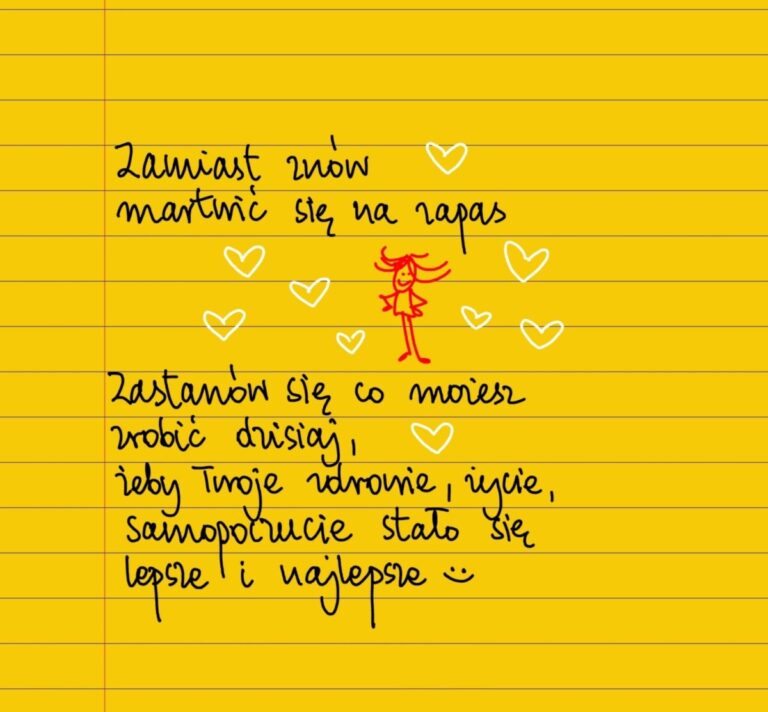 Zamiast znów
martwić się na zapas
Zastanów się co możesz
zrobić dzisiaj,
żeby Twoje zdrowie, życie,
samopoczucie stało się
lepsze i najlepsze :)